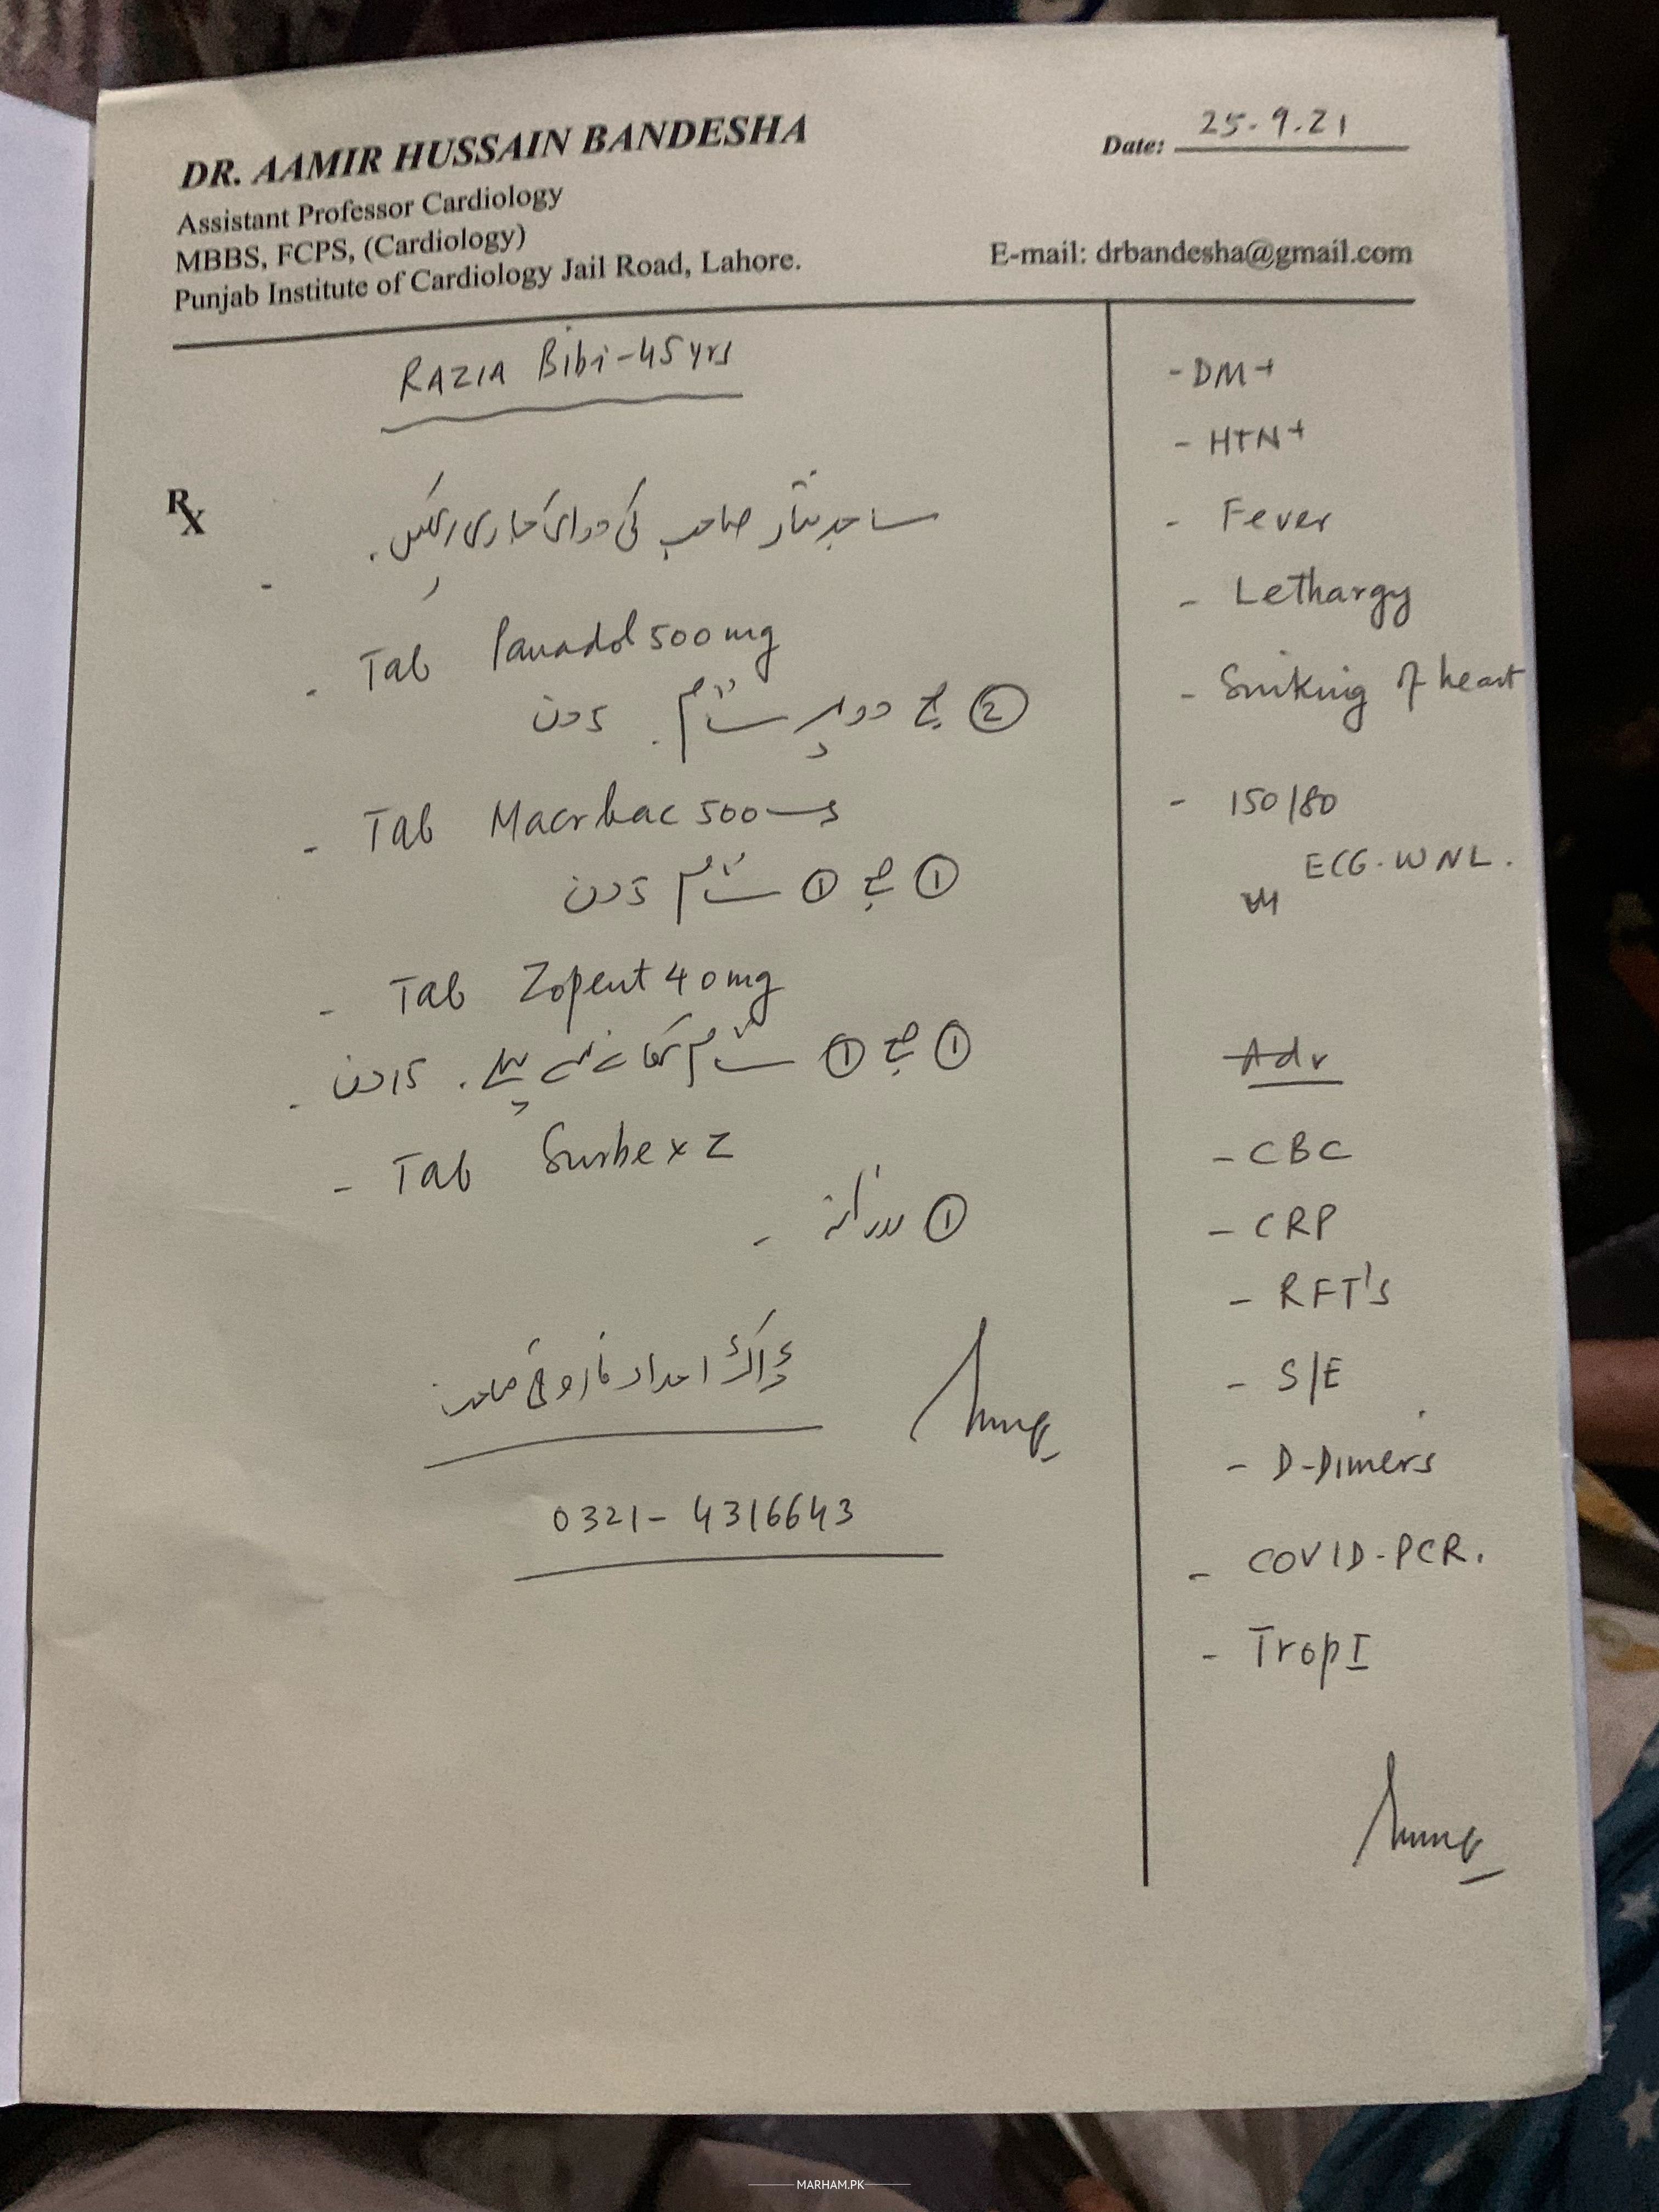 DR. AAMIR HUSSAIN BANDESHA
Assistant Professor Cardiology
MBBS, FCPS, (Cardiology)
Punjab Institute of Cardiology Jail Road, Lahore.
Date: 25.9.21
E-mail: drbandesha@gmail.com
RAZIA Bibi-45yrs
Rx
ساجد نثار صاحب کی دوائی جاری رکھیں۔
- Tab Panadol 500mg
② صبح دوپہر شام۔ 5 دن
- Tab Macrbac 500mg
① صبح ① شام 5 دن
- Tab Zopent 40mg
① صبح ① شام کھانے سے پہلے۔ 15 دن
- Tab Surbex Z
① روزانہ
ڈاکٹر امداد فاروقی صاحب
0321-4316643
- DM+
- HTN+
- Fever
- Lethargy
- Sinking of heart
- 150/80
ECG-WNL.
Adv
- CBC
- CRP
- RFT's
- S/E
- D-Dimers
- COVID-PCR.
- Trop I
MARHAM.PK